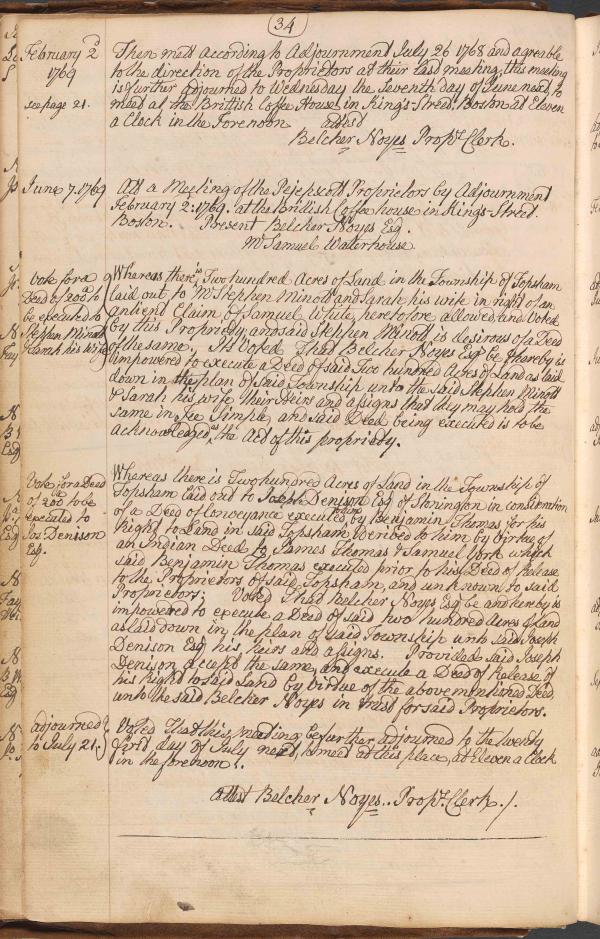 34
February 2d
1769
see page 21.
Then mett according to Adjournment July 26 1768 and agreable
to the direction of the Proprietors at their last meeting, this meeting
is further adjourned to Wednesday the Seventh day of June next, to
meet at the Brittish Coffee House in King's Street, Boston at Eleven
a Clock in the Forenoon attest
Belcher Noyes Propt. Clerk.
June 7. 1769
Att a Meeting of the Pejepscott Proprietors by Adjournment
February 2: 1769. at the Brittish Coffee house in Kings Street
Boston. Present Belcher Noyes Esq
Mr Samuel Waterhouse
Vote for a
Deed of 200a. to
be executed to
Stephen Minott
& Sarah his wife
Whereas there is Two hundred Acres of Land in the Township of Topsham
laid out to Mr Stephen Minott and Sarah his wife in right of an
antient Claim of Samuel White, heretofore allowed, and Voted
by this Propriety, and said Stephen Minott is desirous of a Deed
of the same. Itt Voted That Belcher Noyes Esq be & hereby is
impowered to execute a Deed of said Two hundred Acres of Land as laid
down in the plan of said Township unto the said Stephen Minott
& Sarah his wife their Heirs and assigns that they may hold the
same in Fee Simple, and said Deed being executed is to be
acknowledged as the Act of this propriety.
Vote for a Deed
of 200a to be
executed to
Jos Denison
Esq.
Whereas there is Two hundred Acres of Land in the Township of
Topsham laid out to Joseph Denison Esq of Stonington in consideration
of a Deed of Conveyance executed to him by Benjamin Thomas for his
Right to Land in said Topsham, derived to him by virtue of
an Indian Deed to James Thomas & Samuel York which
said Benjamin Thomas executed prior to his Deed of Release
to the Proprietors of said Topsham, and unknown to said
Proprietors; Voted That Belcher Noyes Esq be and hereby is
impowered to execute a Deed of said two hundred Acres of Land
as laid down in the plan of said Township unto said Joseph
Denison Esq his heirs and assigns. Provided said Joseph
Denison accept the same, and execute a Deed of Release of
his Right to said Land by virtue of the abovementioned Deed,
unto the said Belcher Noyes in trust for said Proprietors.
adjourned
to July 21.
Voted That this meeting be further adjourned to the twenty
first day of July next, to meet at this place, at Eleven a Clock
in the forenoon.
attest Belcher Noyes.. Propt. Clerk./.